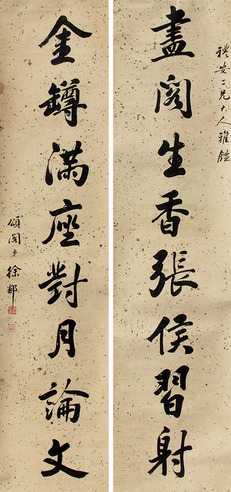 安二兄大人雅鑑
畫閣生香張侯習射
金罇滿座對月論文
頌閣弟徐郙